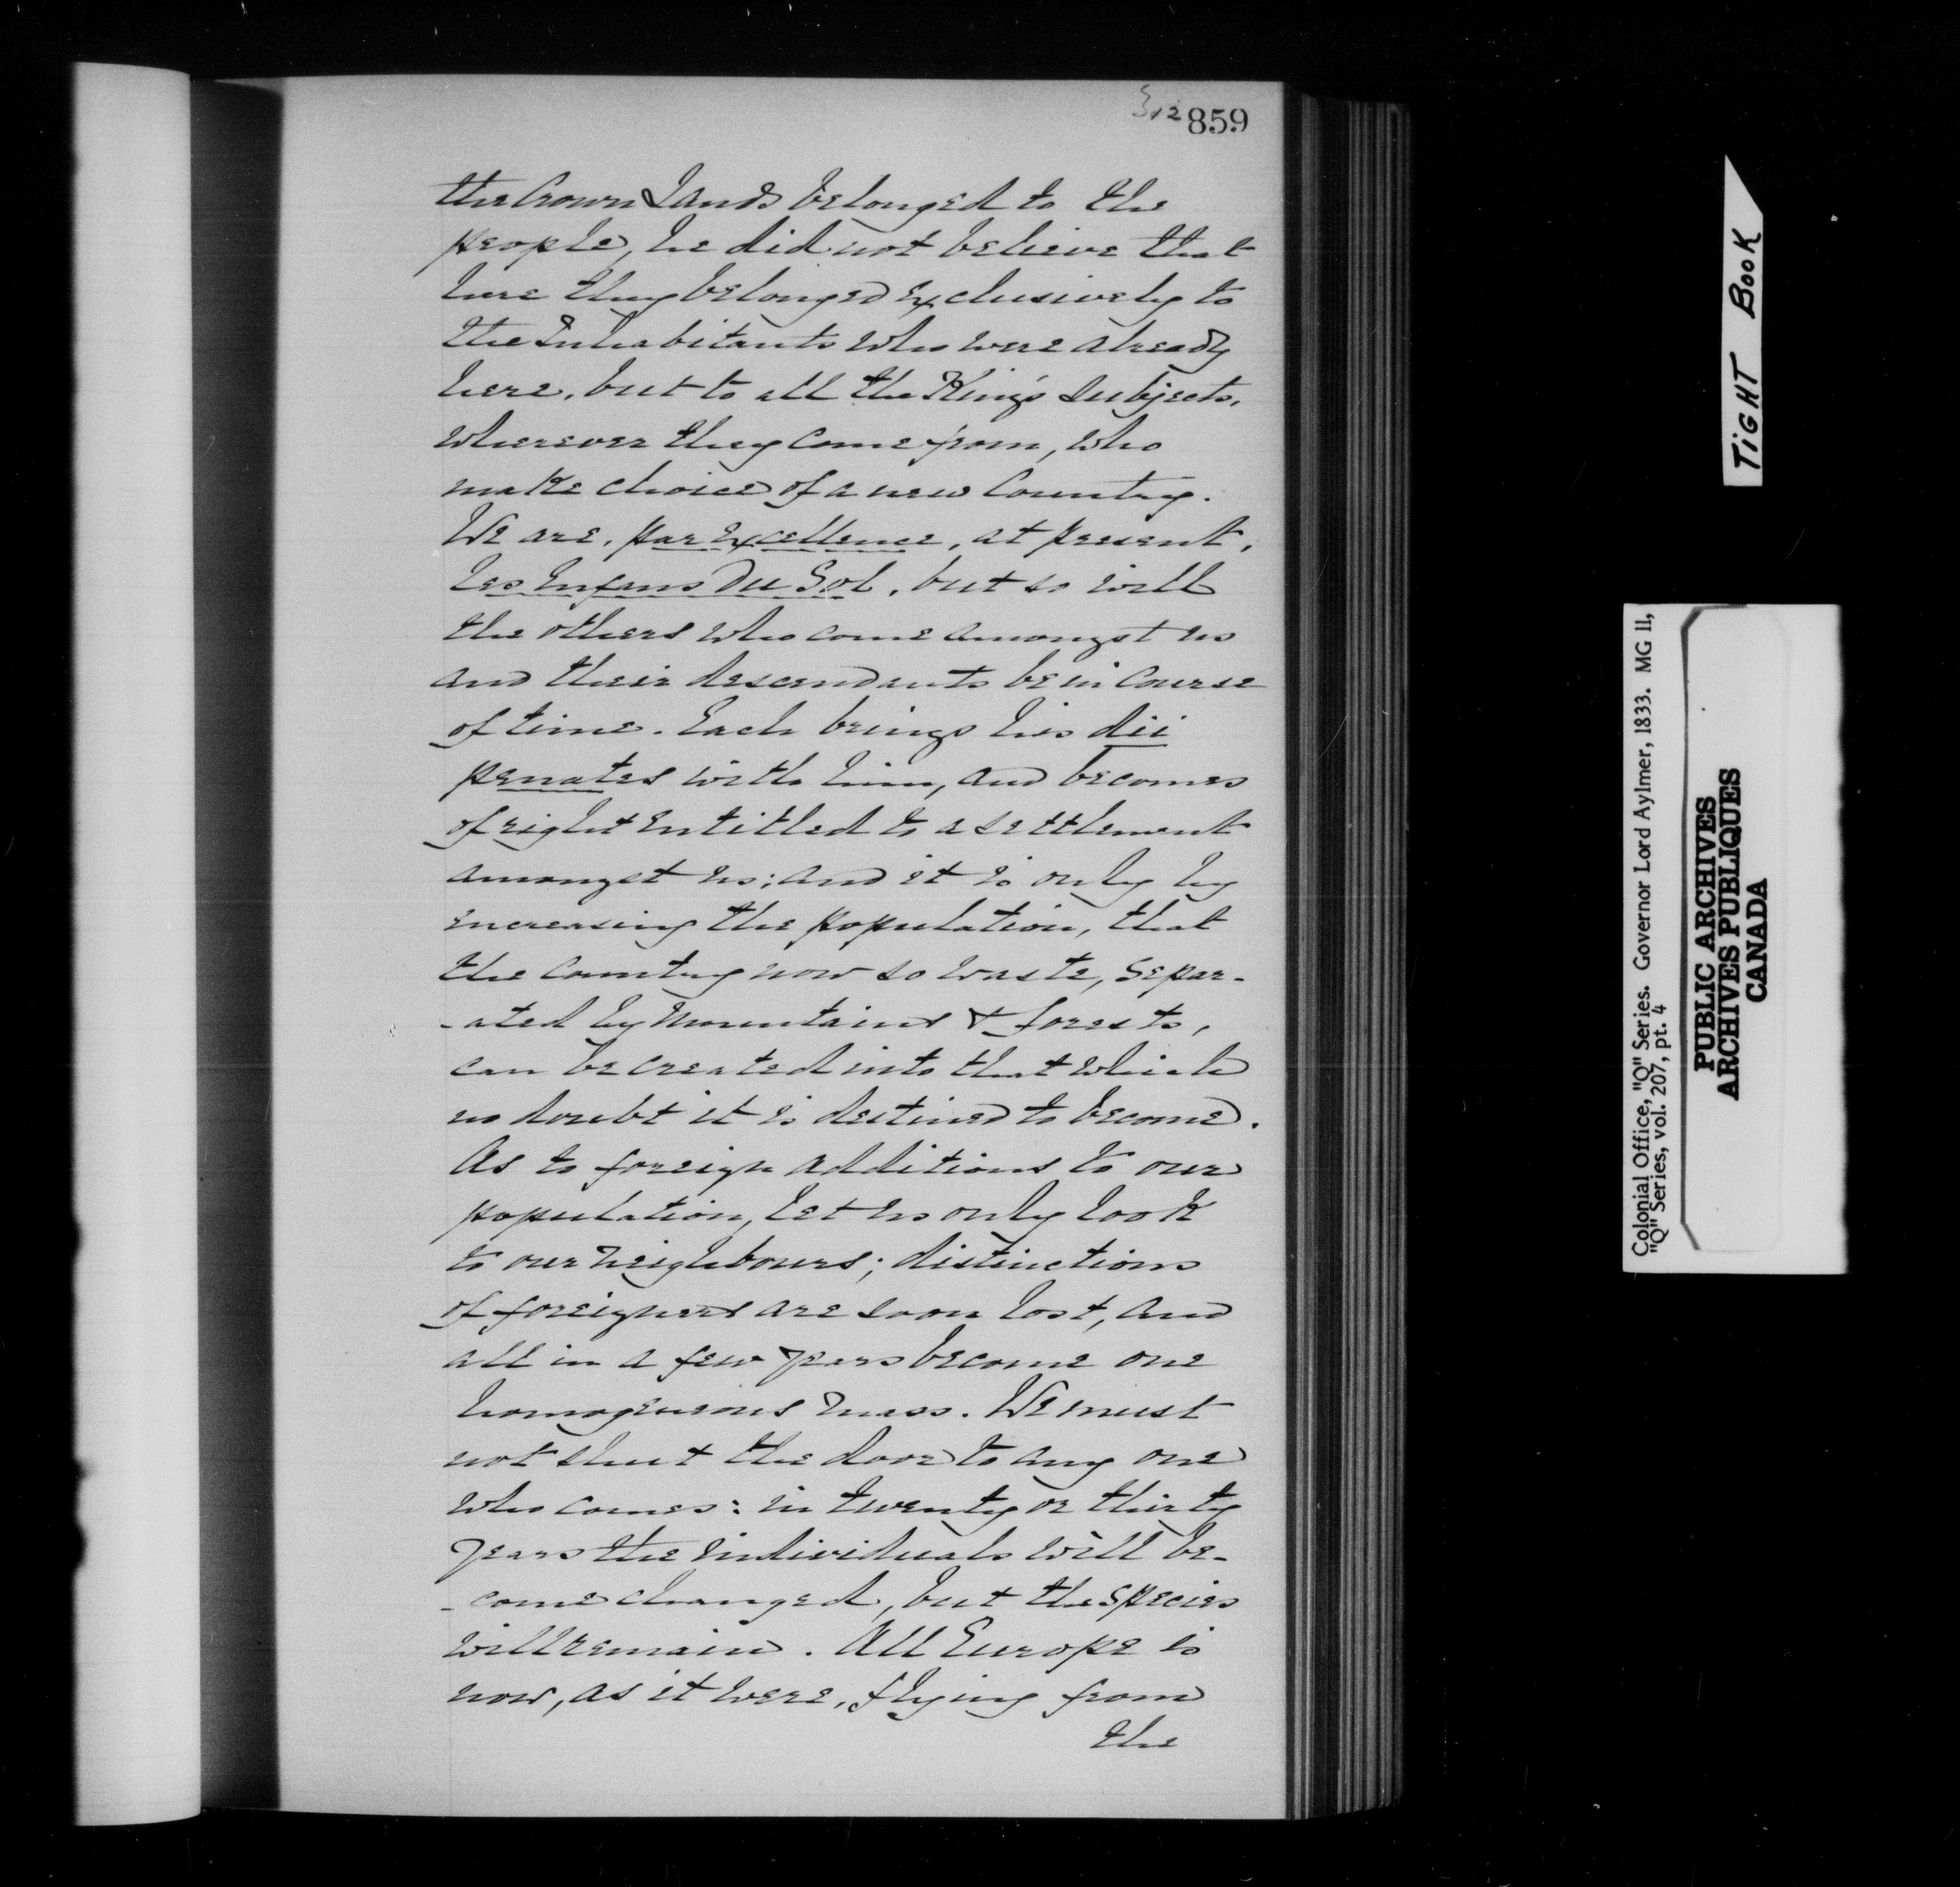 312 859
the Crown Lands belonged to the
people, he did not believe that
here they belonged exclusively to
the Inhabitants who were already
here, but to all the King's subjects,
wherever they come from, who
make choice of a new Country.
We are, par excellence, at present,
les Enfans du Sol, but so will
the others who come amongst us
and their descendants be in course
of time. Each brings his dii
penates with him, and becomes
of right entitled to a settlement
amongst us; and it is only by
increasing the population, that
the Country now so waste, separ-
-ated by mountains & forests,
can be created into that which
no doubt it is destined to become.
As to foreign additions to our
population, let us only look
to our neighbours; distinctions
of foreigners are soon lost, and
all in a few years become one
homogeneous mass. We must
not shut the door to any one
who comes: in twenty or thirty
years the individuals will be-
-come changed, but the species
will remain. All Europe is
now, as it were, flying from
the
TIGHT BOOK
Colonial Office, "Q" Series. Governor Lord Aylmer, 1833. MG 11,
"Q" Series, vol. 207, pt. 4
PUBLIC ARCHIVES
ARCHIVES PUBLIQUES
CANADA